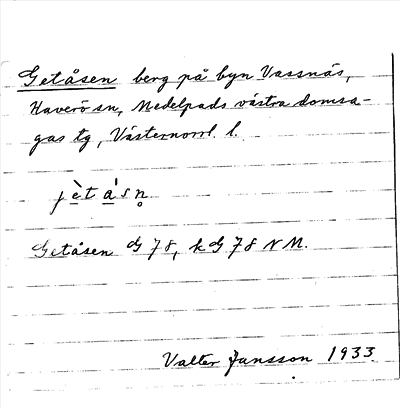 Getåsen berg på byn Vassnäs,
Haverö sn, Medelpads västra domsa-
gas tg, Västernorrl. l.
jètás n̥
Getåsen G 78, k G 78 N M.
Valter Jansson 1933